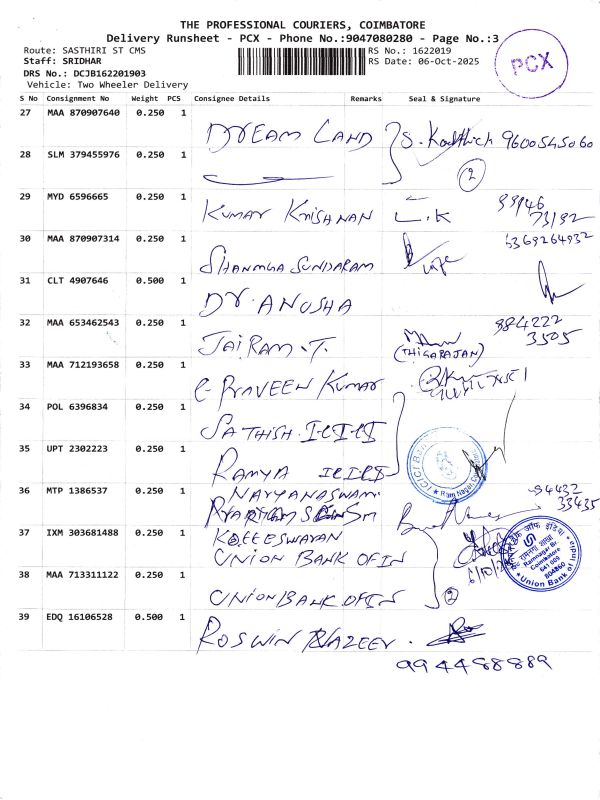 THE PROFESSIONAL COURIERS, COIMBATORE
Delivery Runsheet - PCX - Phone No.:9047080280 - Page No.:3
Route: SASTHIRI ST CMS
RS No.: 1622019
Staff: SRIDHAR
RS Date: 06-Oct-2025
DRS No.: DCJB162201903
Vehicle: Two Wheeler Delivery
PCX
S No Consignment No Weight PCS Consignee Details Remarks Seal & Signature
27 MAA 870907640 0.250 1 DREAM LAND S. Karthick 9600545060
28 SLM 379455976 0.250 1 2
29 MYD 6596665 0.250 1 KUMAR KRISHNAN L.K 99146
73192
30 MAA 870907314 0.250 1 SHANMGA SUNDARAM 6369264932
31 CLT 4907646 0.500 1 DR. ANUSHA
32 MAA 653462543 0.250 1 JAIRAM. T. (THIGARAJAN) 984222
3505
33 MAA 712193658 0.250 1 C- PRAVEEN KUMAR
34 POL 6396834 0.250 1 SATHISH. ICICI
35 UPT 2302223 0.250 1 RAMYA ICICI
ICICI Ban
Ram Nagar, Co
36 MTP 1386537 0.250 1 NARYANASWAMI 94432
33435
37 IXM 303681488 0.250 1 KOTEESWARAN
UNION BANK OF IN
38 MAA 713311122 0.250 1 UNION BANK OF IN 2
Ramnagar Br.
Coimbatore
641 009
904860
Union Bank of India
39 EDQ 16106528 0.500 1 ROSWIN NAZEER.
994488889